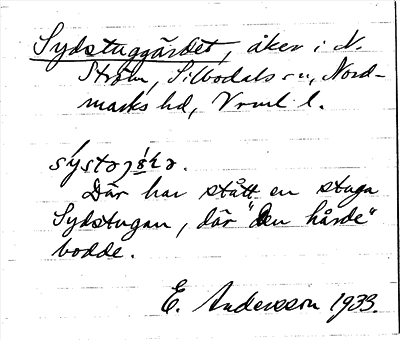 Sydstuggärdet, åker i N.
Ström, Silbodals sn, Nord-
marks hd, Vrml l.
Där har stått en stuga
Sydstugan, där "den hårde"
bodde.
E. Andersson 1933.